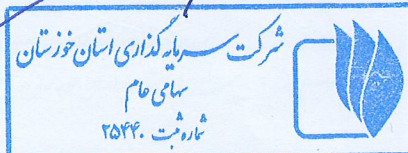 شرکت سرمایه گذاری استان خوزستان
سهامی عام
شماره ثبت ۲۵۴۴۰